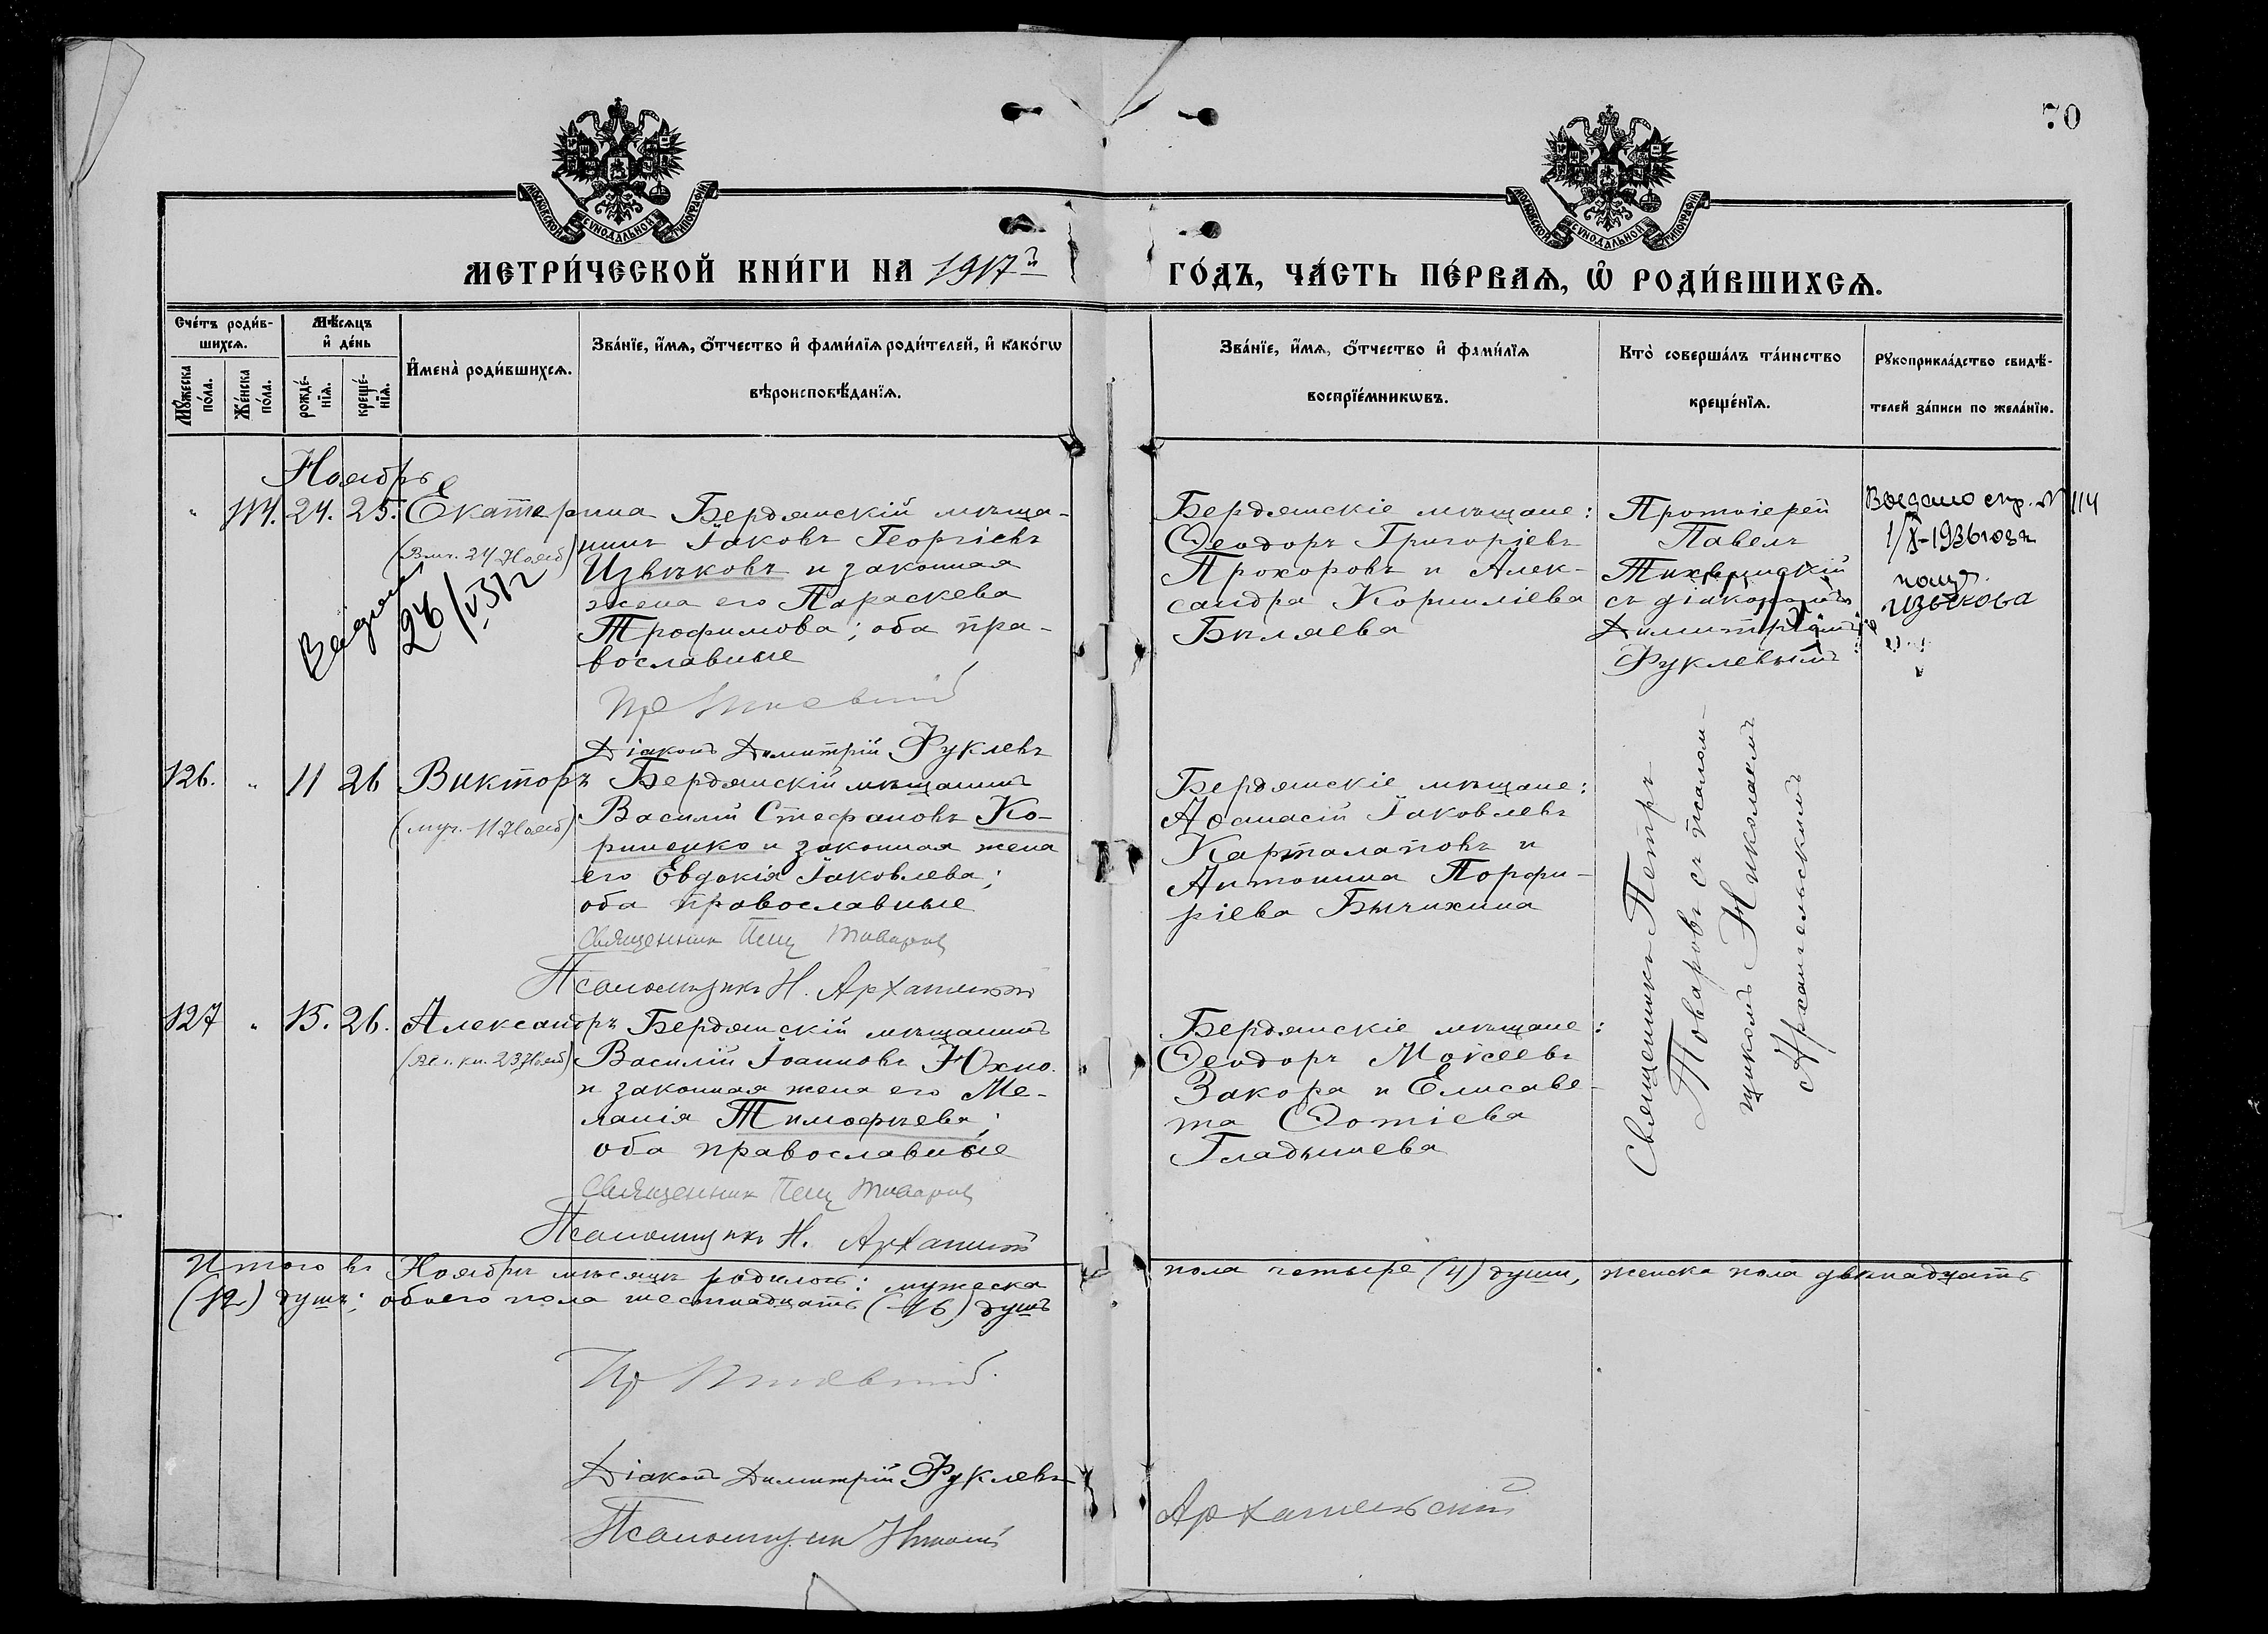 70
МОСКОВСКОЙ СѴНОДАЛЬНОЙ ТИПОГРАФІИ
МОСКОВСКОЙ СѴНОДАЛЬНОЙ ТИПОГРАФІИ
МЕТРИ́ЧЕСКОЙ КНИ́ГИ НА 1917й ГО́ДЪ, ЧА́СТЬ ПЕ́РВАѦ, Ѡ҆ РОДИ́ВШИХСѦ.
Сче́тъ роди́в-
шихсѧ.
Мꙋ́жеска по́ла.
Же́нска по́ла.
Мѣ́сѧцъ
и҆ де́нь
рожде́-
нїѧ.
креще́-
нїѧ.
И҆мена̀ роди́вшихсѧ.
Зва́нїе, и҆́мѧ, ѻ҆́тчество и҆ фами́лїѧ роди́телей, и҆ како́гѡ
вѣроисповѣ́данїѧ.
Зва́нїе, и҆́мѧ, ѻ҆́тчество и҆ фами́лїѧ
воспрїе́мникѡвъ.
Кто̀ соверша́лъ та́инство
креще́нїѧ.
Рꙋкоприкла́дство свидѣ́-
телей за́писи по жела́нїю.
Ноябрь
" 114. 24. 25. Екатерина
(Влмч. 24 Нояб)
28/V 31 г
Бердянскій мѣща-
нинъ Іаковъ Георгіевъ
Извѣковъ и законная
жена его Параскева
Трофимова; оба пра-
вославные
Діаконъ Димитрій Фуклевъ
Бердянскіе мѣщане:
Ѳеодоръ Григоріевъ
Прохоровъ и Алек-
сандра Корниліева
Бѣляева
Протоіерей
Павелъ
Тихвинскій
съ діакономъ
Димитріемъ
Фуклевымъ
Выдано спр. N 114
1/X-1936 года
Извекова
126. " 11 26 Викторъ
(муч. 11 Нояб)
Бердянскій мѣщанинъ
Василій Стефановъ Ко-
риненко и законная жена
его Евдокія Іаковлева;
оба православные
Священник Петр Товаров
Псаломщикъ Н. Архангельскій
Бердянскіе мѣщане:
Аѳанасій Іаковлевъ
Карталаповъ и
Антонина Порфи-
ріева Бычихина
Священникъ Петръ
Товаровъ съ псалом-
щикомъ Николаемъ
Архангельскимъ
127 " 15. 26. Александръ
(Вел. кн. 23 Нояб)
Бердянскій мѣщанинъ
Василій Іоанновъ Юхно
и законная жена его Ме-
ланія Тимофѣева;
оба православные
Священник Петр Товаров
Псаломщикъ Н. Архангельскій
Бердянскіе мѣщане:
Ѳеодоръ Моисеевъ
Закора и Елисаве-
та Фотіева
Гладышева
Итого въ Ноябрѣ мѣсяцѣ родилось: мужеска пола четыре (4) души, женска пола двѣнадцать
(12) душъ; обоего пола шестнадцать (16) душъ
Діаконъ Димитрій Фуклевъ
Псаломщик Николай Архангельский